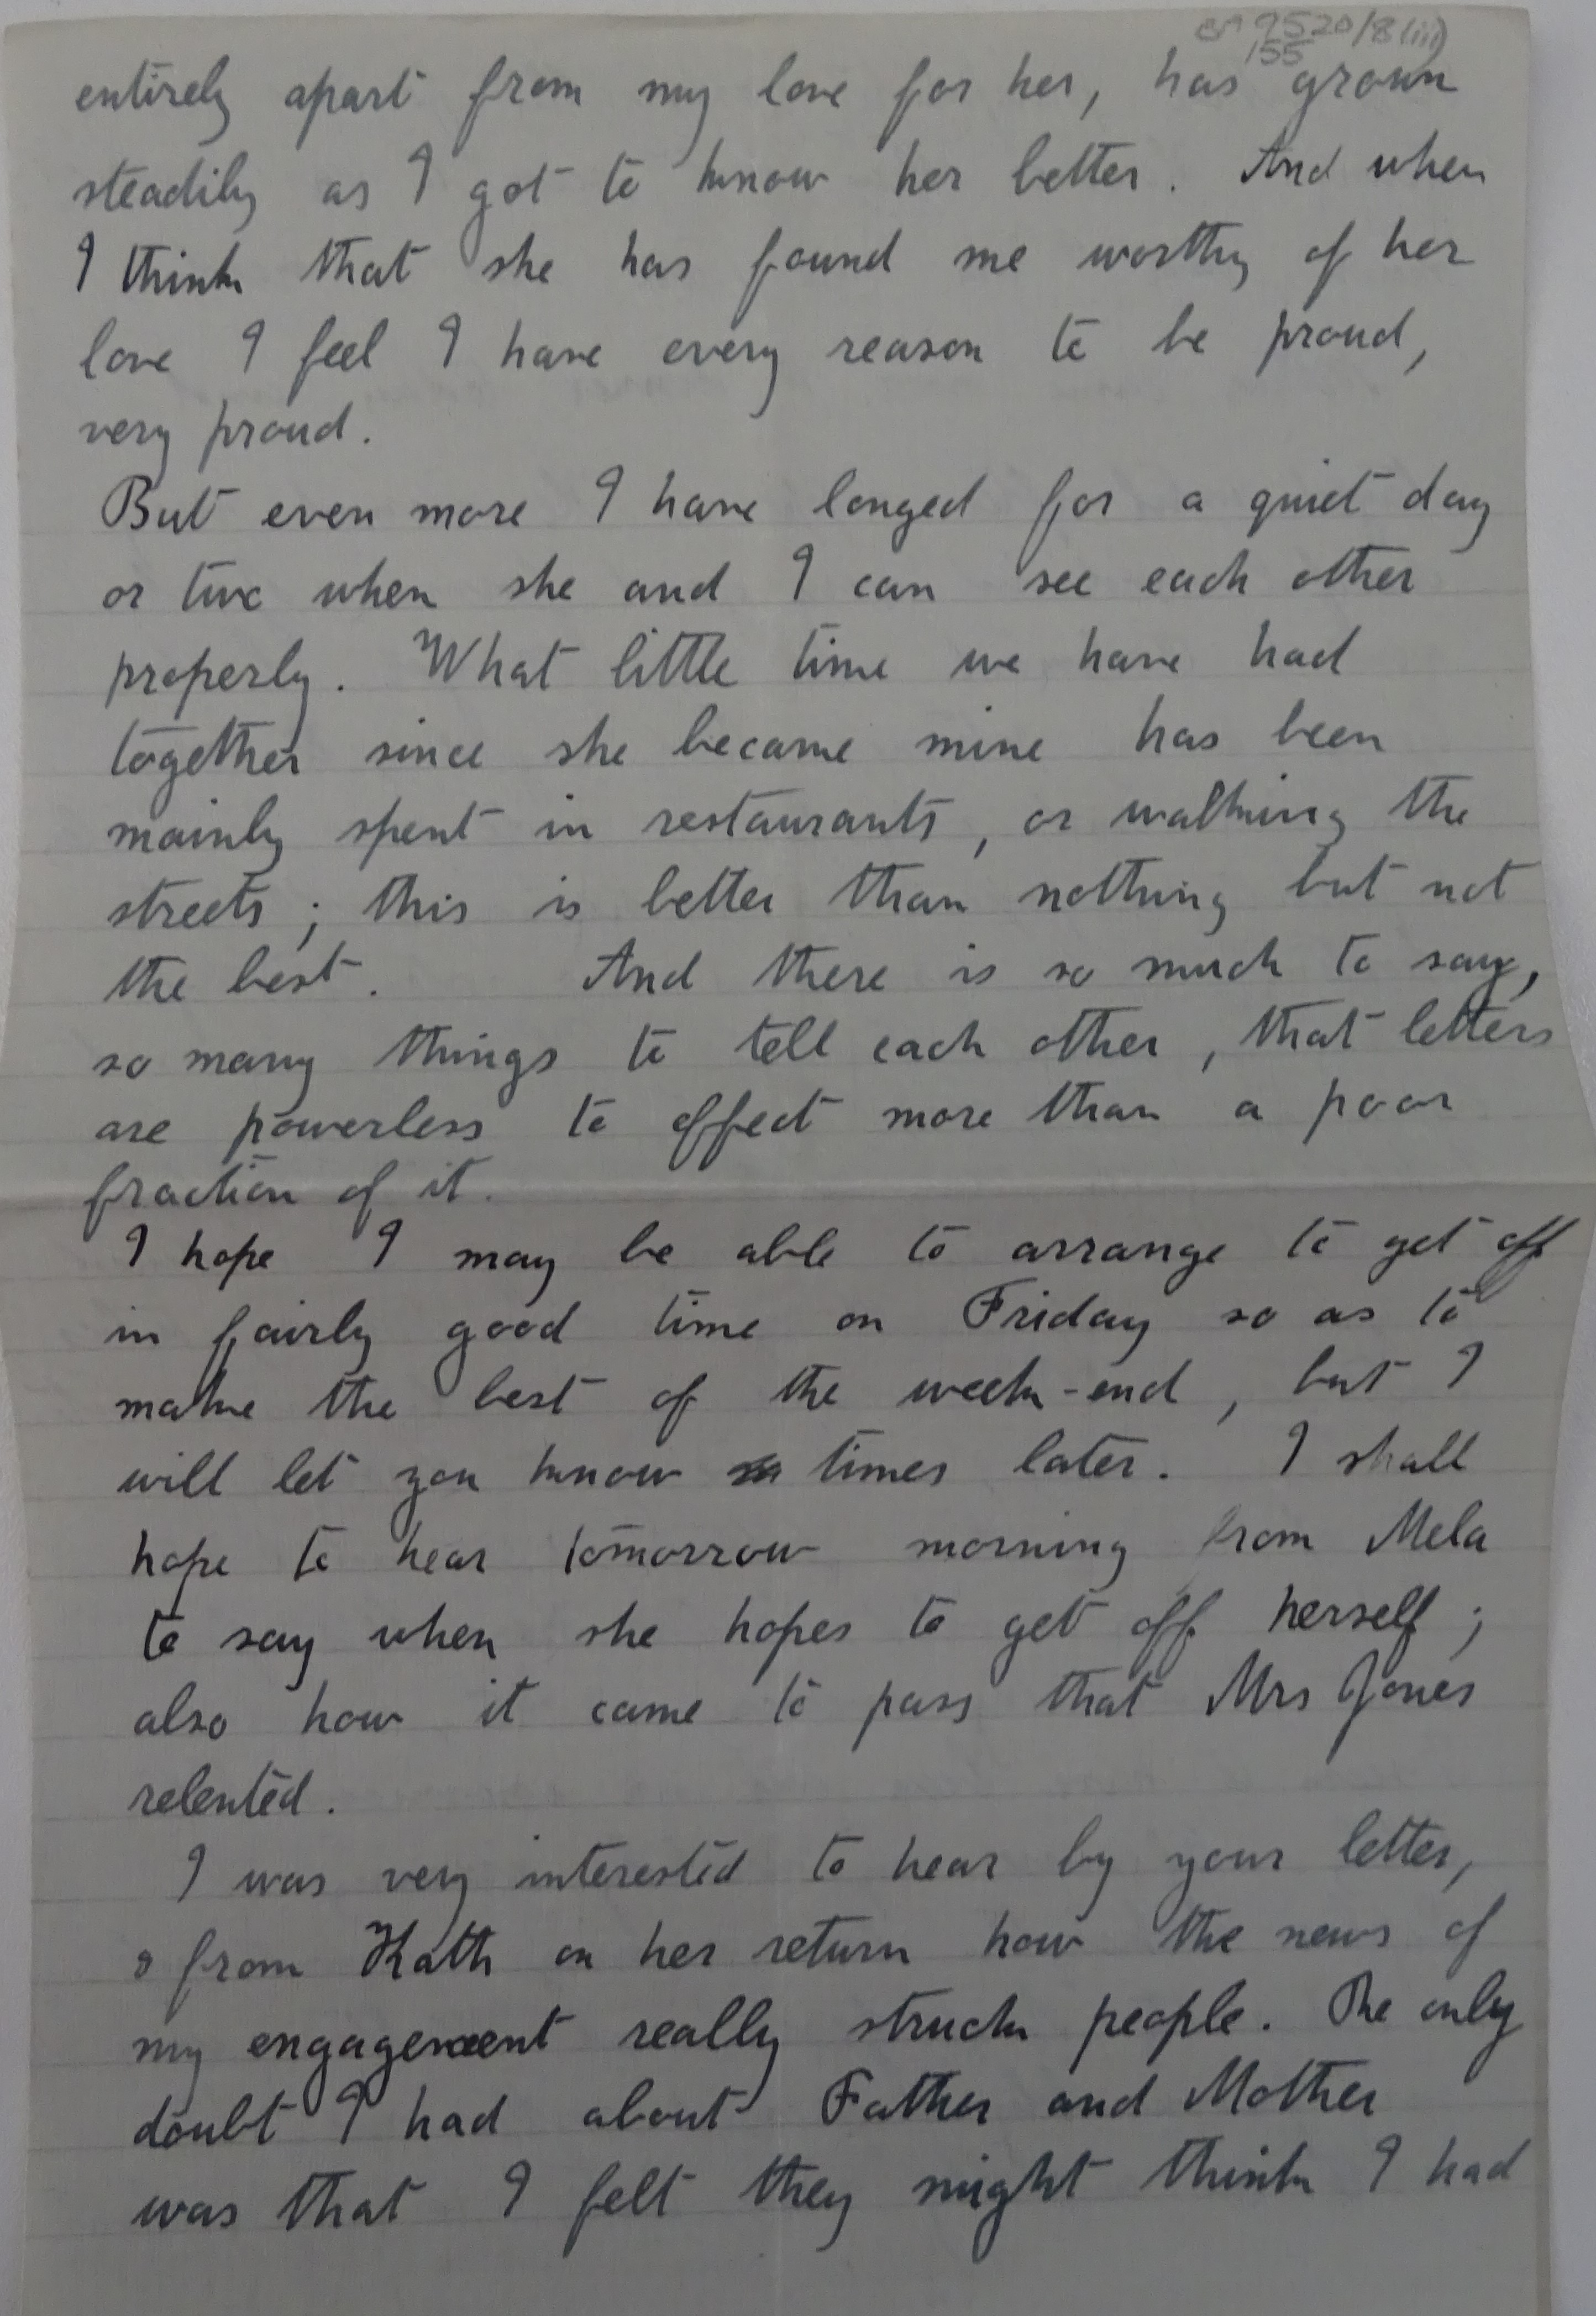 9520/8(iii)
155
entirely apart from my love for her, has grown
steadily as I got to know her better. And when
I think that she has found me worthy of her
love I feel I have every reason to be proud,
very proud.
But even more I have longed for a quiet day
or two when she and I can see each other
properly. What little time we have had
together since she became mine has been
mainly spent in restaurants, or walking the
streets; this is better than nothing but not
the best. And there is so much to say,
so many things to tell each other, that letters
are powerless to effect more than a poor
fraction of it.
I hope I may be able to arrange to get off
in fairly good time on Friday so as to
make the best of the week-end, but I
will let you know times later. I shall
hope to hear tomorrow morning from Mela
to say when she hopes to get off herself;
also how it came to pass that Mrs Jones
relented.
I was very interested to hear by your letter,
& from Kath on her return how the news of
my engagement really struck people. The only
doubt I had about Father and Mother
was that I felt they might think I had